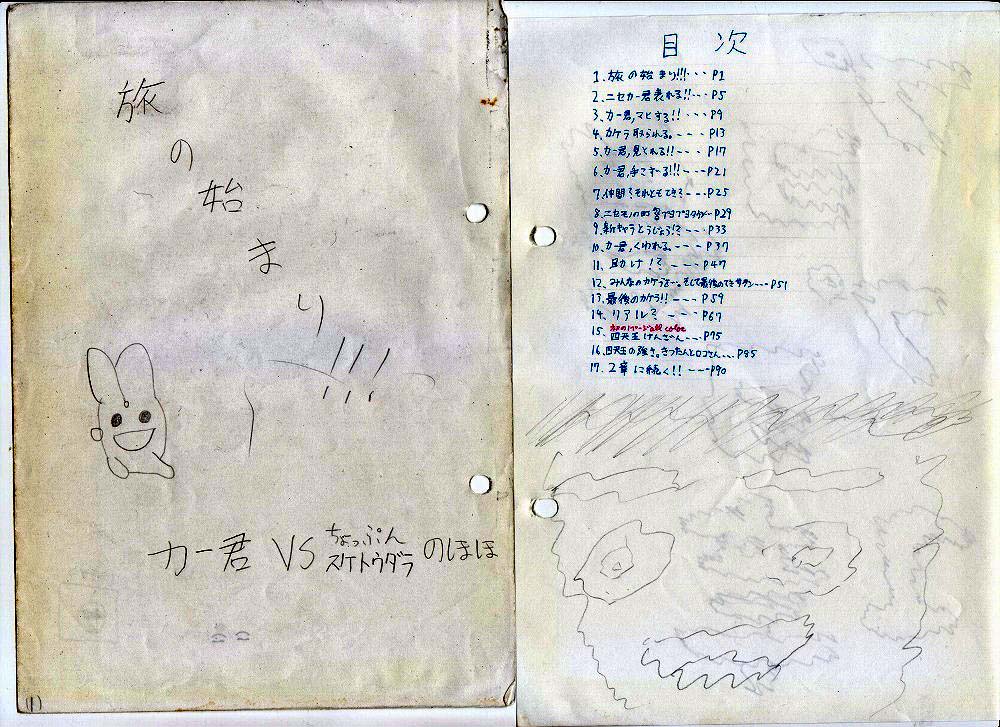 旅
の
始
ま
り
!!!
カー君 VS ちょっぷん
スケトウダラ のほほ
(1)
目次
1、旅の始まり!!!・・・P1
2、ニセカー君表れる!!・・・P5
3、カー君,マヒする!!・・・P9
4、カケラ取られる。---P13
5、カー君,見とれる!!---P17
6、カー君,手こずる!!!---P21
7、仲間?それともてき?---P25
8、ニセモノの町 P29
9、新キャラとうじょう!?---P33
10、カー君,くわれる。---P37
11、助け!?---P47
12、みんなのカケラを…。そして最後のてきサタン---P51
13、最後のカケラ!!---P59
14、リアル?---P67
all color
15、四天王けんざん---P75
16、四天王の強さ。さったんとロコさん…P85
17、2章に続く!!---P90